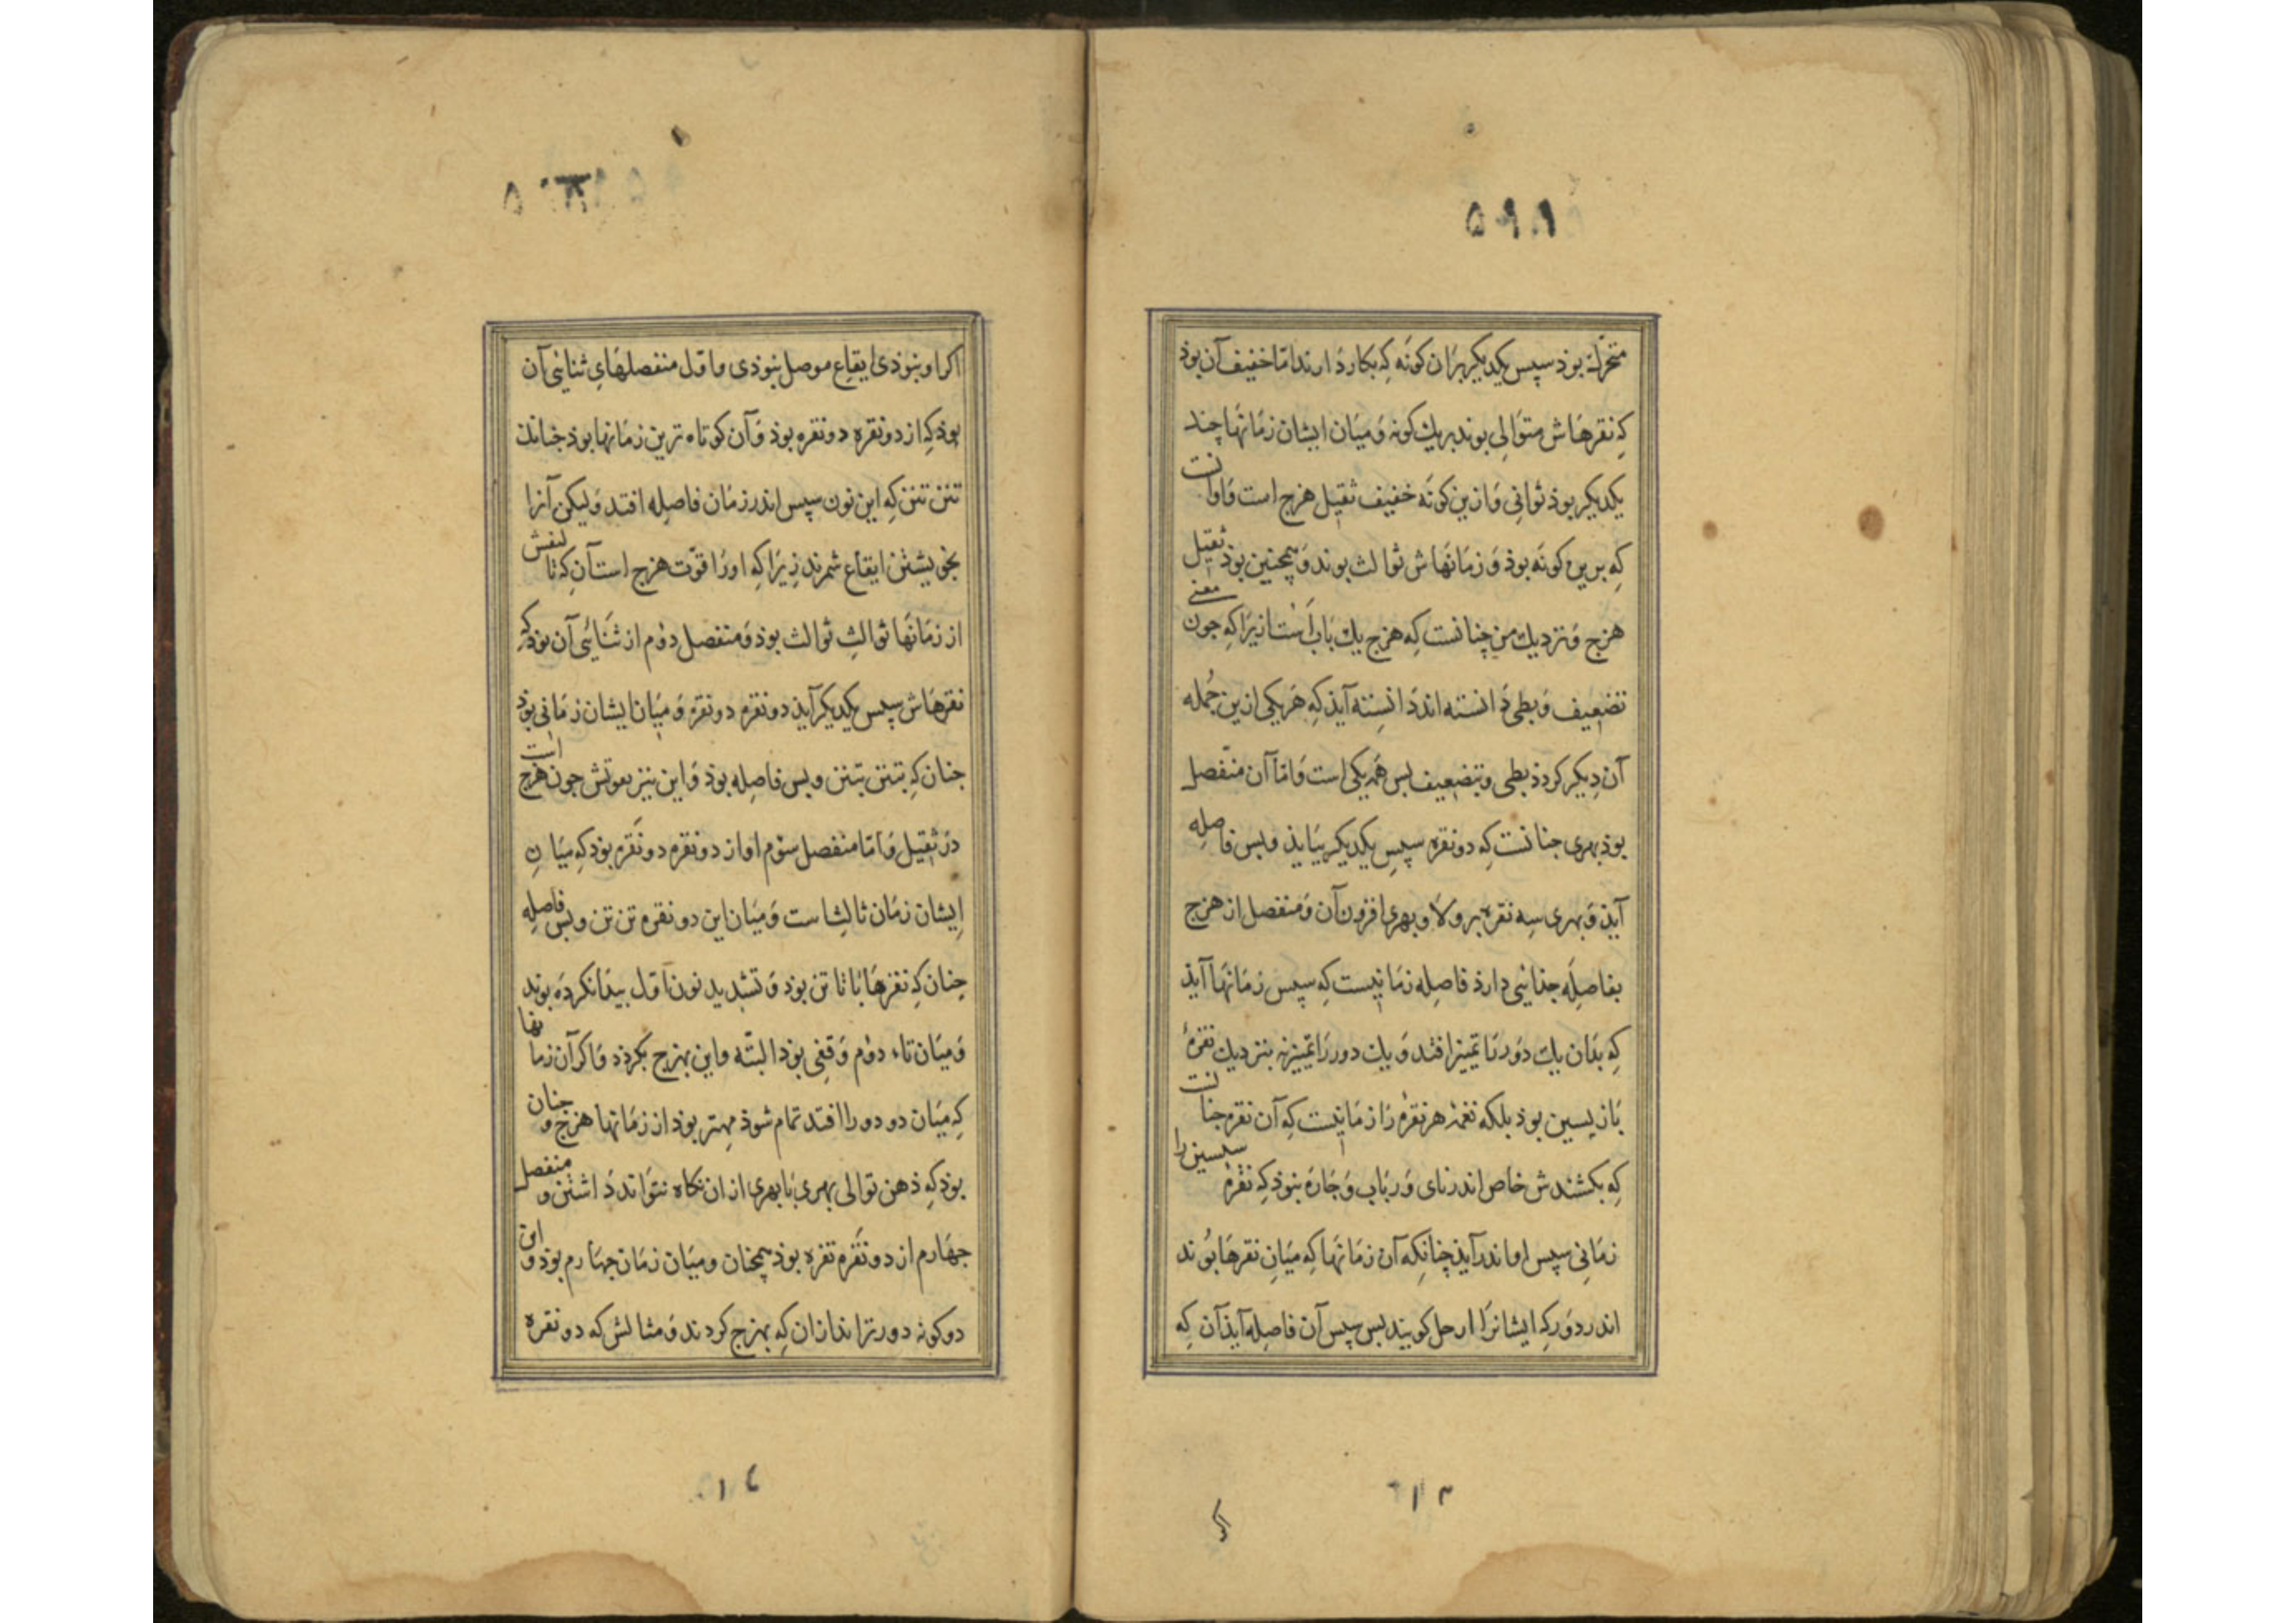 متحرك بوذ سپس یکدیکر بران کونه که بکار دارند اما خفیف آن بوذ
که نقرهاش متوالی بوند بریك کونه و میان ایشان زمانها چند
یکدیکر بوذ ثوانی و ازین کونه خفیف ثقیل هزج است و اوانست
که برین کونه بوذ و زمانهاش ثوالث بوند و همچنین بوذ ثقیل
هزج و نزدیك من چنانست که هزج یك باب است ازیرا که جون معنی
تضعیف و بطی دانسته اند دانسته آیذ که هر یکی ازین جمله
آن دیکر کردذ ببطی و بتضعیف بس همه یکی است و اما آن منفصل
بوذ بهری جنانست که دو نقره سپس یکدیکر بیایذ و بس فاصله
آیذ و بهری سه نقره بر ولا و بهری افزون آن و منفصل از هزج
بفاصله جذایی دارذ فاصله زمانیست که سپس زمانها آیذ
که بذان یك دور تا تمیز افتد و یك دور را تمیز نه بنزدیك نقرۀ
بازپسین بوذ بلکه نغمه هر نقره را زمانیست که آن نقره جنانست
که بکشندش خاص اندر نای و رباب و جاره نبوذ که نقره سپسین را
زمانی سپس او اندر آیذ چنانکه آن زمانها که میان نقرها بوند
اندر دور که ایشانرا ارحل کویند بس سپس آن فاصله آیذ آن که
اکر او نبوذی ایقاع موصل نبوذی و اول منفصلهای ثنایی آن
بوذ که از دو نقره دو نقره بوذ و آن کوتاه ترین زمانها بوذ جنانك
تنن تنن که این نون سپس اندر زمان فاصله افتد ولیکن آنرا
بخویشتن ایقاع شمرند زیرا که اورا قوت هزج است آن که تا لنفش
از زمانها ثوالث ثوالث بوذ و منفصل دوم از ثنائی آن بوذ که
نقرهاش سپس یکدیکر آیذ دو نقره دو نقره و میان ایشان زمانی بوذ
جنان که تنن تنن و بس فاصله بوذ و این نیز بقوتش جون هزج است
در ثقیل و اما منفصل سوم او از دو نقره دو نقره بوذ که میان
ایشان زمان ثالث است و میان این دو نقره تن تن و بس فاصله
جنان که نقرها با تا تن بوذ و تشدید نون اول بیدا نکرده بوند
و میان تاء دوم وقفی بوذ البته و این بهزج بکردذ و اکر آن زمانها
که میان دو دور را افتد تمام شوذ مهتر بوذ از زمانها هزج و جنان
بوذ که ذهن توالی بهری با بهری از ان نکاه نتواند داشتن و منفصل
جهارم از دو نقره نقره بوذ همچنان و میان زمان جهارم بوذ و این
دو کونه دورترانذ از ان که بهزج کردند و مثالش که دو نقره
۱۳
۱۴